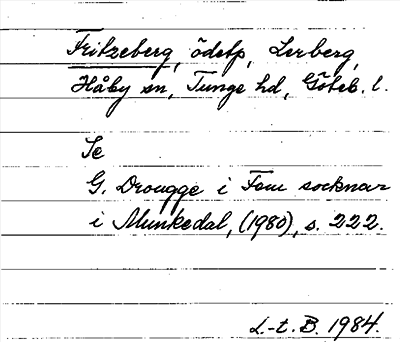 Fritzeberg, ödetp, Lerberg,
Håby sn, Tunge hd, Göteb. l.
Se
G. Drougge i Fem socknar
i Munkedal, (1980), s. 222.
L-t. B. 1984.